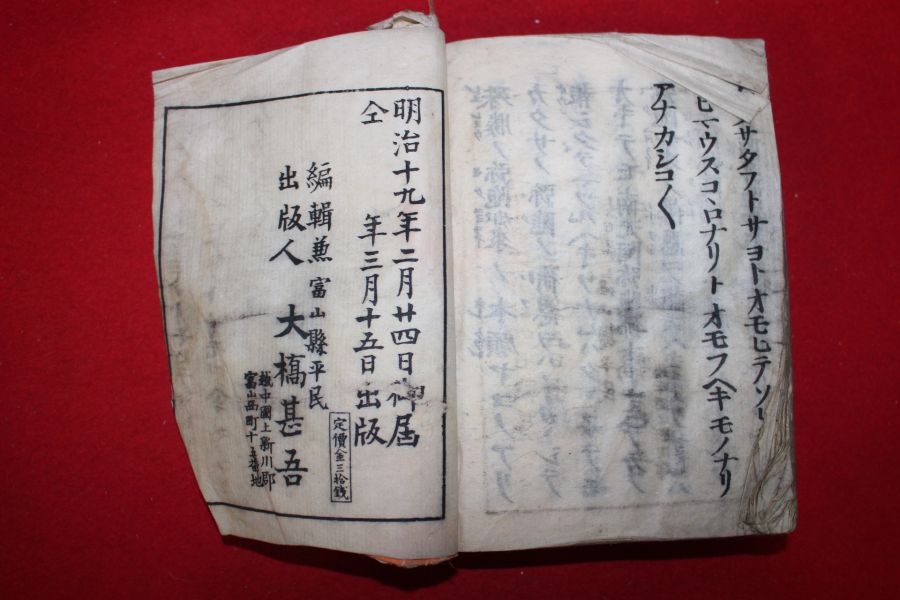 サタフトサヨトオモヒテソ
ヒマウスコヽロナリトオモフヘキモノナリ
アナカシコ〱
明治十九年二月廿四日御届
仝 年三月十五日出版
定價金三拾銭
編輯兼 富山縣平民
出版人 大橋甚吾
越中國上新川郡
富山西町十五番地